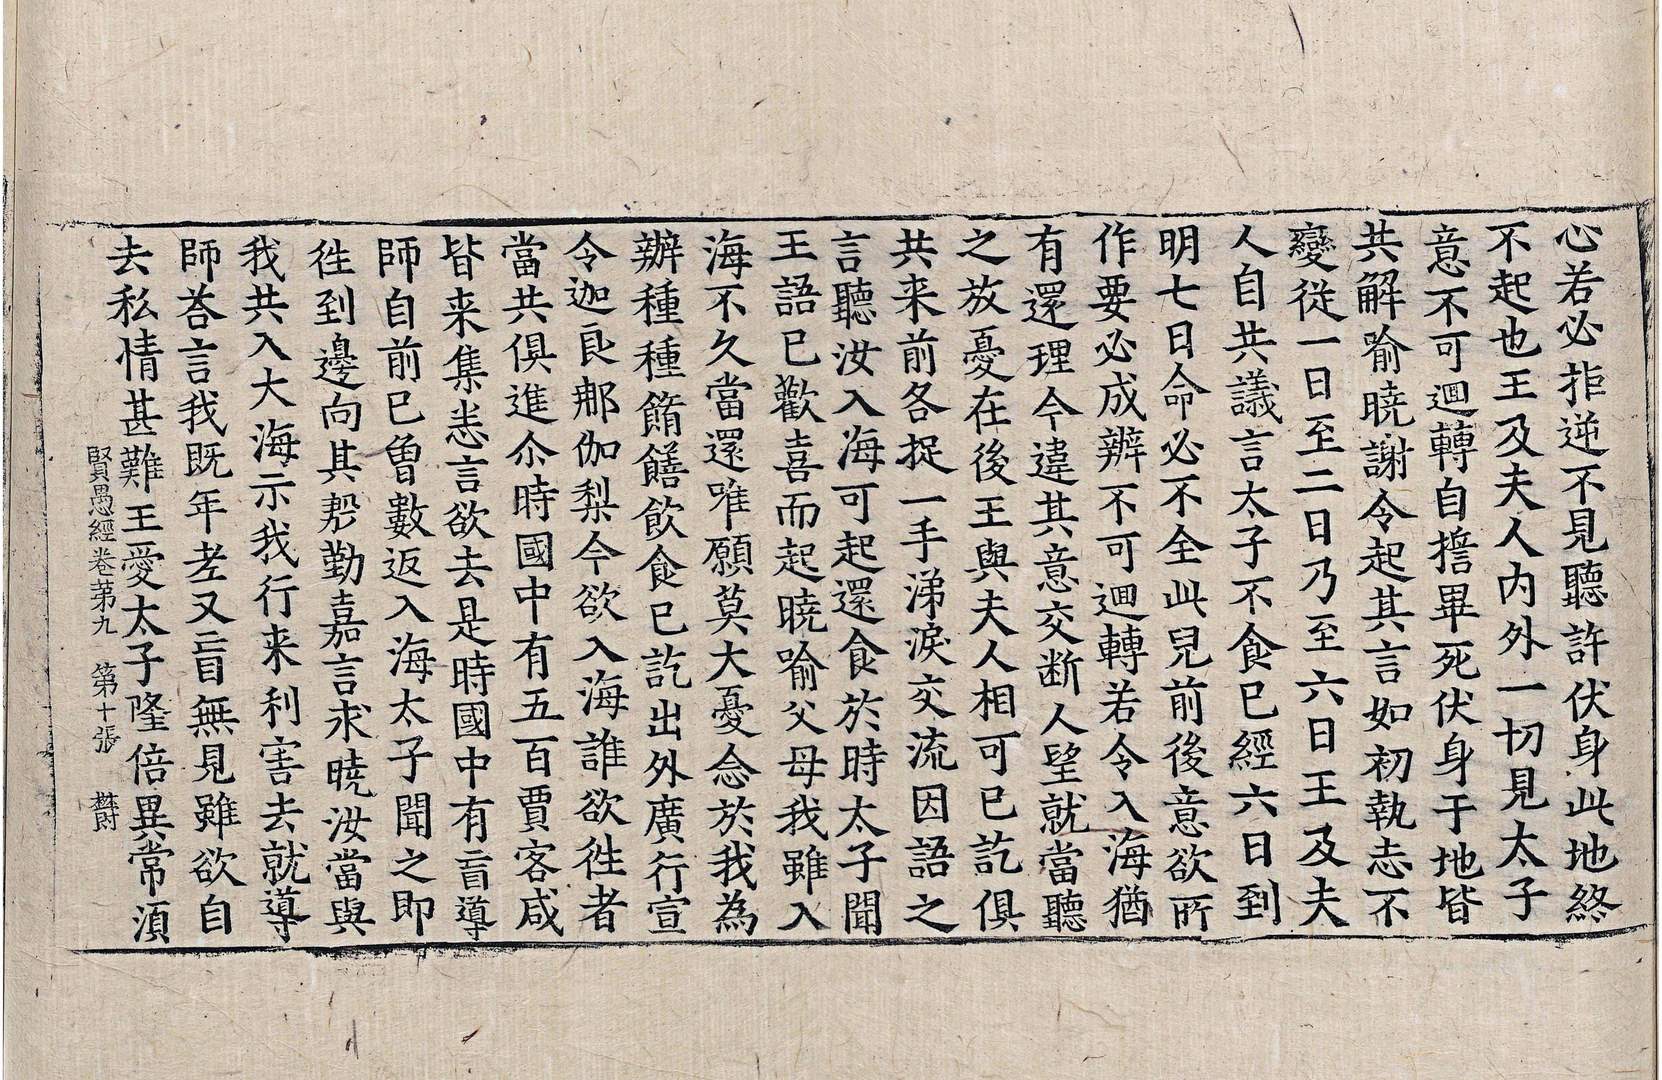 心若必拒逆不見聽許伏身此地終
不起也王及夫人內外一切見太子
意不可迴轉自擔畢死伏身于地皆
共解喻曉謝令起其言如初執志不
變從一日至二日乃至六日王及夫
人自共議言太子不食已經六日到
明七日命必不全此兒前後意欲所
作要必成辦不可迴轉若令入海猶
有還理今違其意交断人望就當聽
之放憂在後王與夫人相可已訖俱
共来前各捉一手涕淚交流因語之
言聽汝入海可起還食於時太子聞
王語已歡喜而起曉喻父母我雖入
海不久當還唯願莫大憂念於我為
辦種種餚饍飲食已訖出外廣行宣
令迦良那伽梨今欲入海誰欲徃者
當共俱進尒時國中有五百賈客咸
皆来集悉言欲去是時國中有盲導
師自前已曾數返入海太子聞之即
徃到邊向其慇勤嘉言求曉汝當與
我共入大海示我行来利害去就導
師荅言我既年老又盲無見雖欲自
去私情甚難王愛太子隆倍異常須
賢愚經卷苐九　第十張